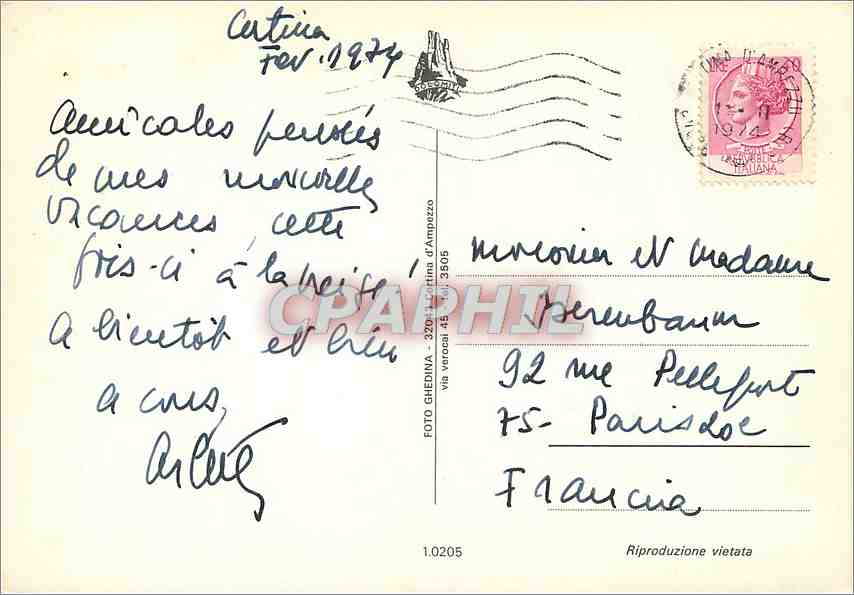 Cortina
Fev. 1974
Amicales pensées
de mes nouvelles
vacances, cette
fois-ci à la neige!
A bientôt et bien
à vous,
Arlette
DOLOMITI
CORTINA D'AMPEZZO
1974
POSTE
REPUBBLICA
ITALIANA
Monsieur et Madame
92 rue Pelleport
75- Paris 20e
Francia
FOTO GHEDINA - 32043 Cortina d'Ampezzo
via verocai 45 - Tel. 3505
CPAPHIL
1.0205
Riproduzione vietata